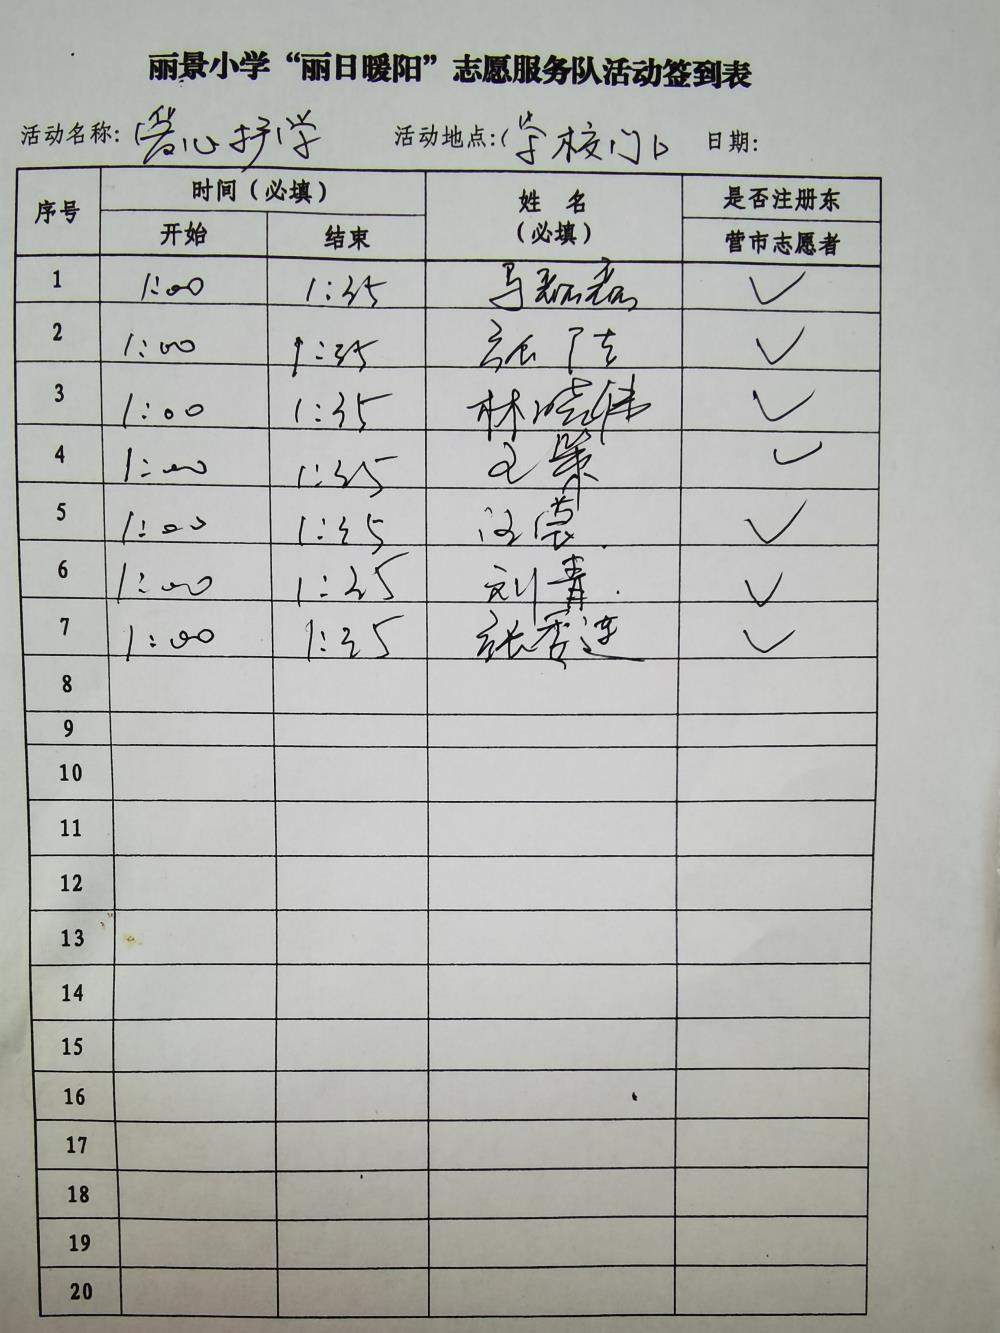 丽景小学“丽日暖阳”志愿服务队活动签到表
活动名称:(爱心护学 活动地点:(学校门口 日期:
序号 时间(必填) 姓 名(必填) 是否注册东营市志愿者
开始 结束
1 1:00 1:35
2 1:00 1:35
3 1:00 1:35 林晓伟
4 1:00 1:35 王
5 1:00 1:35 汪
6 1:00 1:35 刘青
7 1:00 1:35 张香莲
8
9
10
11
12
13
14
15
16
17
18
19
20